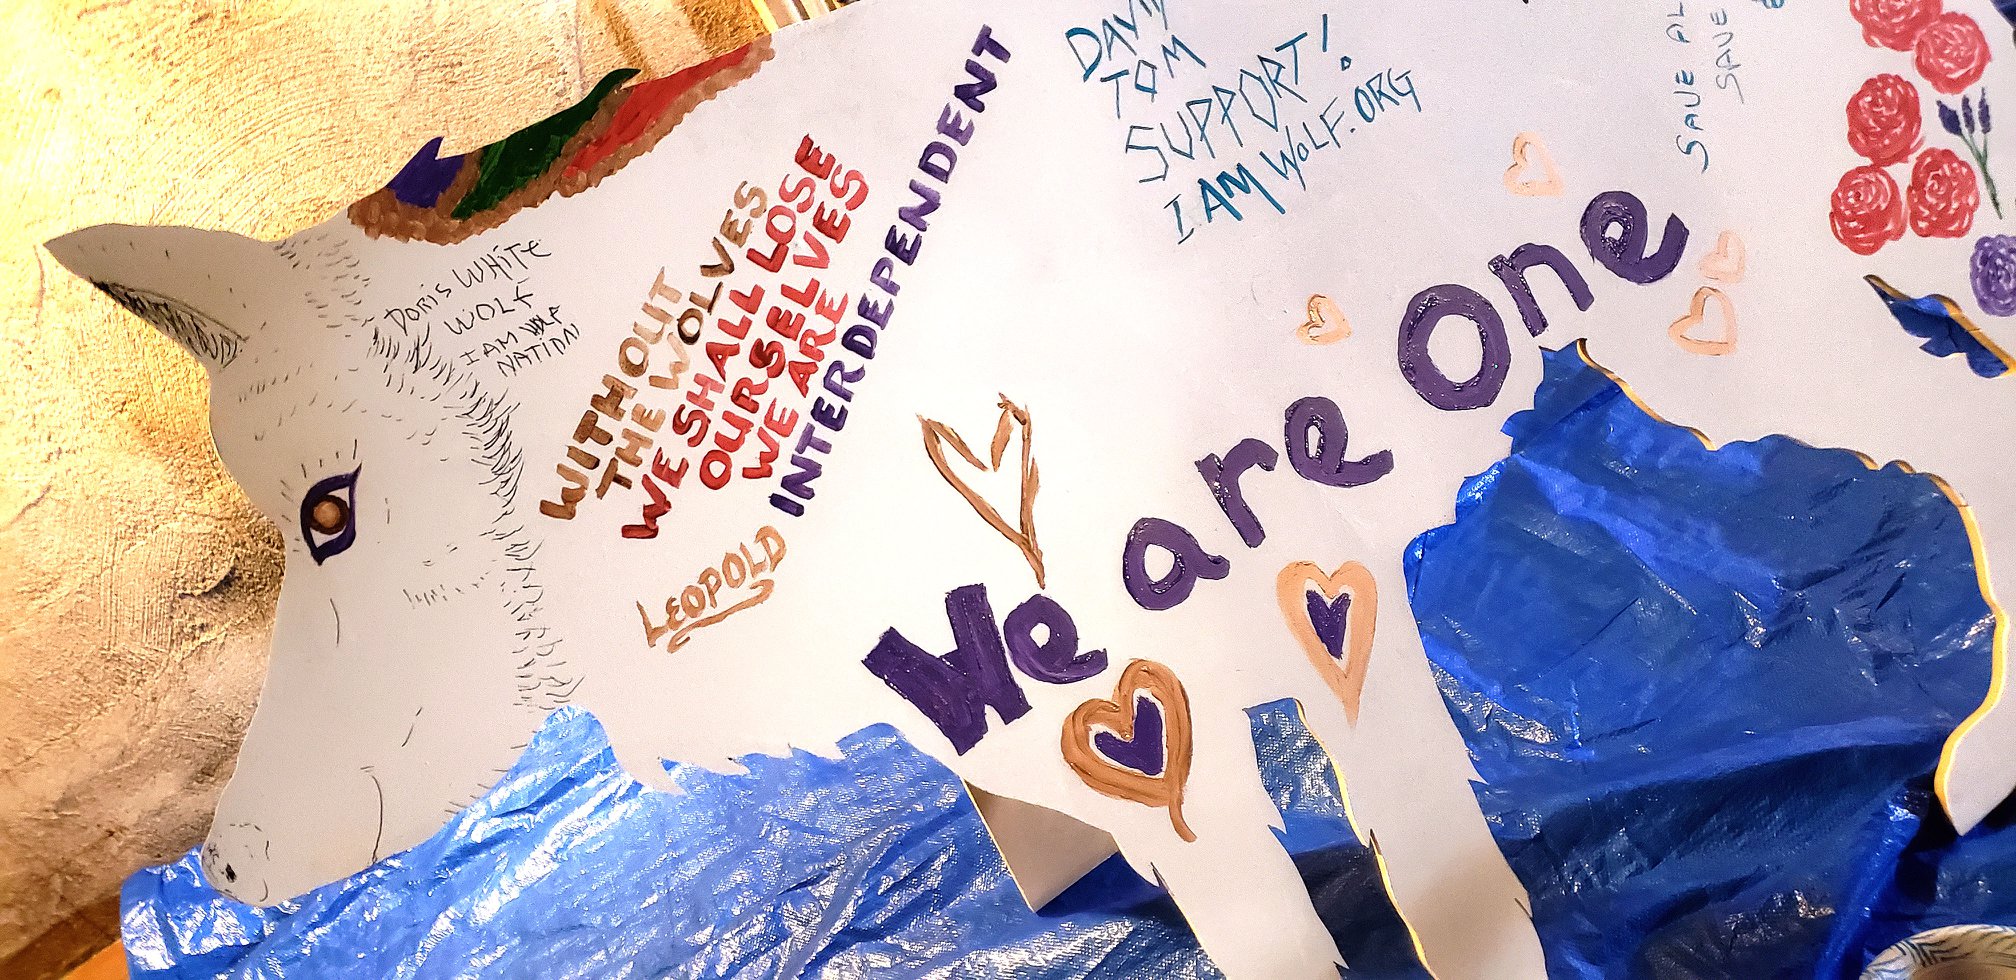 DORIS WHITE
WOLF
I AM WOLF
NATION
WITHOUT
THE WOLVES
WE SHALL LOSE
OURSELVES
WE ARE
INTERDEPENDENT
LEOPOLD
DAVID
TOM
SUPPORT!
I AM WOLF.ORG
We are One
SAVE
SAVE